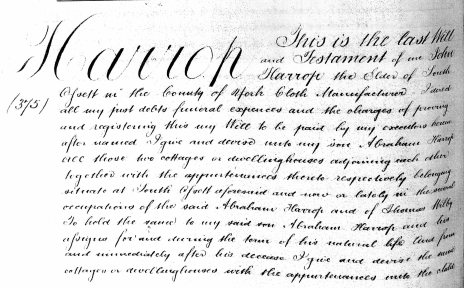 Harrop
This is the last Will
and Testament of me John
Harrop the Elder of South
(375)
Ossett in the County of York Cloth Manufacturer I direct
all my just debts funeral expences and the charges of proving
and registering this my Will to be paid by my executors herein
after named I give and devise unto my son Abraham Harrop
All those two cottages or dwellinghouses adjoining each other
together with the appurtenances thereto respectively belonging
situate at South Ossett aforesaid and now or lately in the several
occupations of the said Abraham Harrop and of Thomas Wilby
To hold the same to my said son Abraham Harrop and his
assigns for and during the term of his natural life And from
and immediately after his decease I give and devise the same
cottages or dwellinghouses with the appurtenances unto the